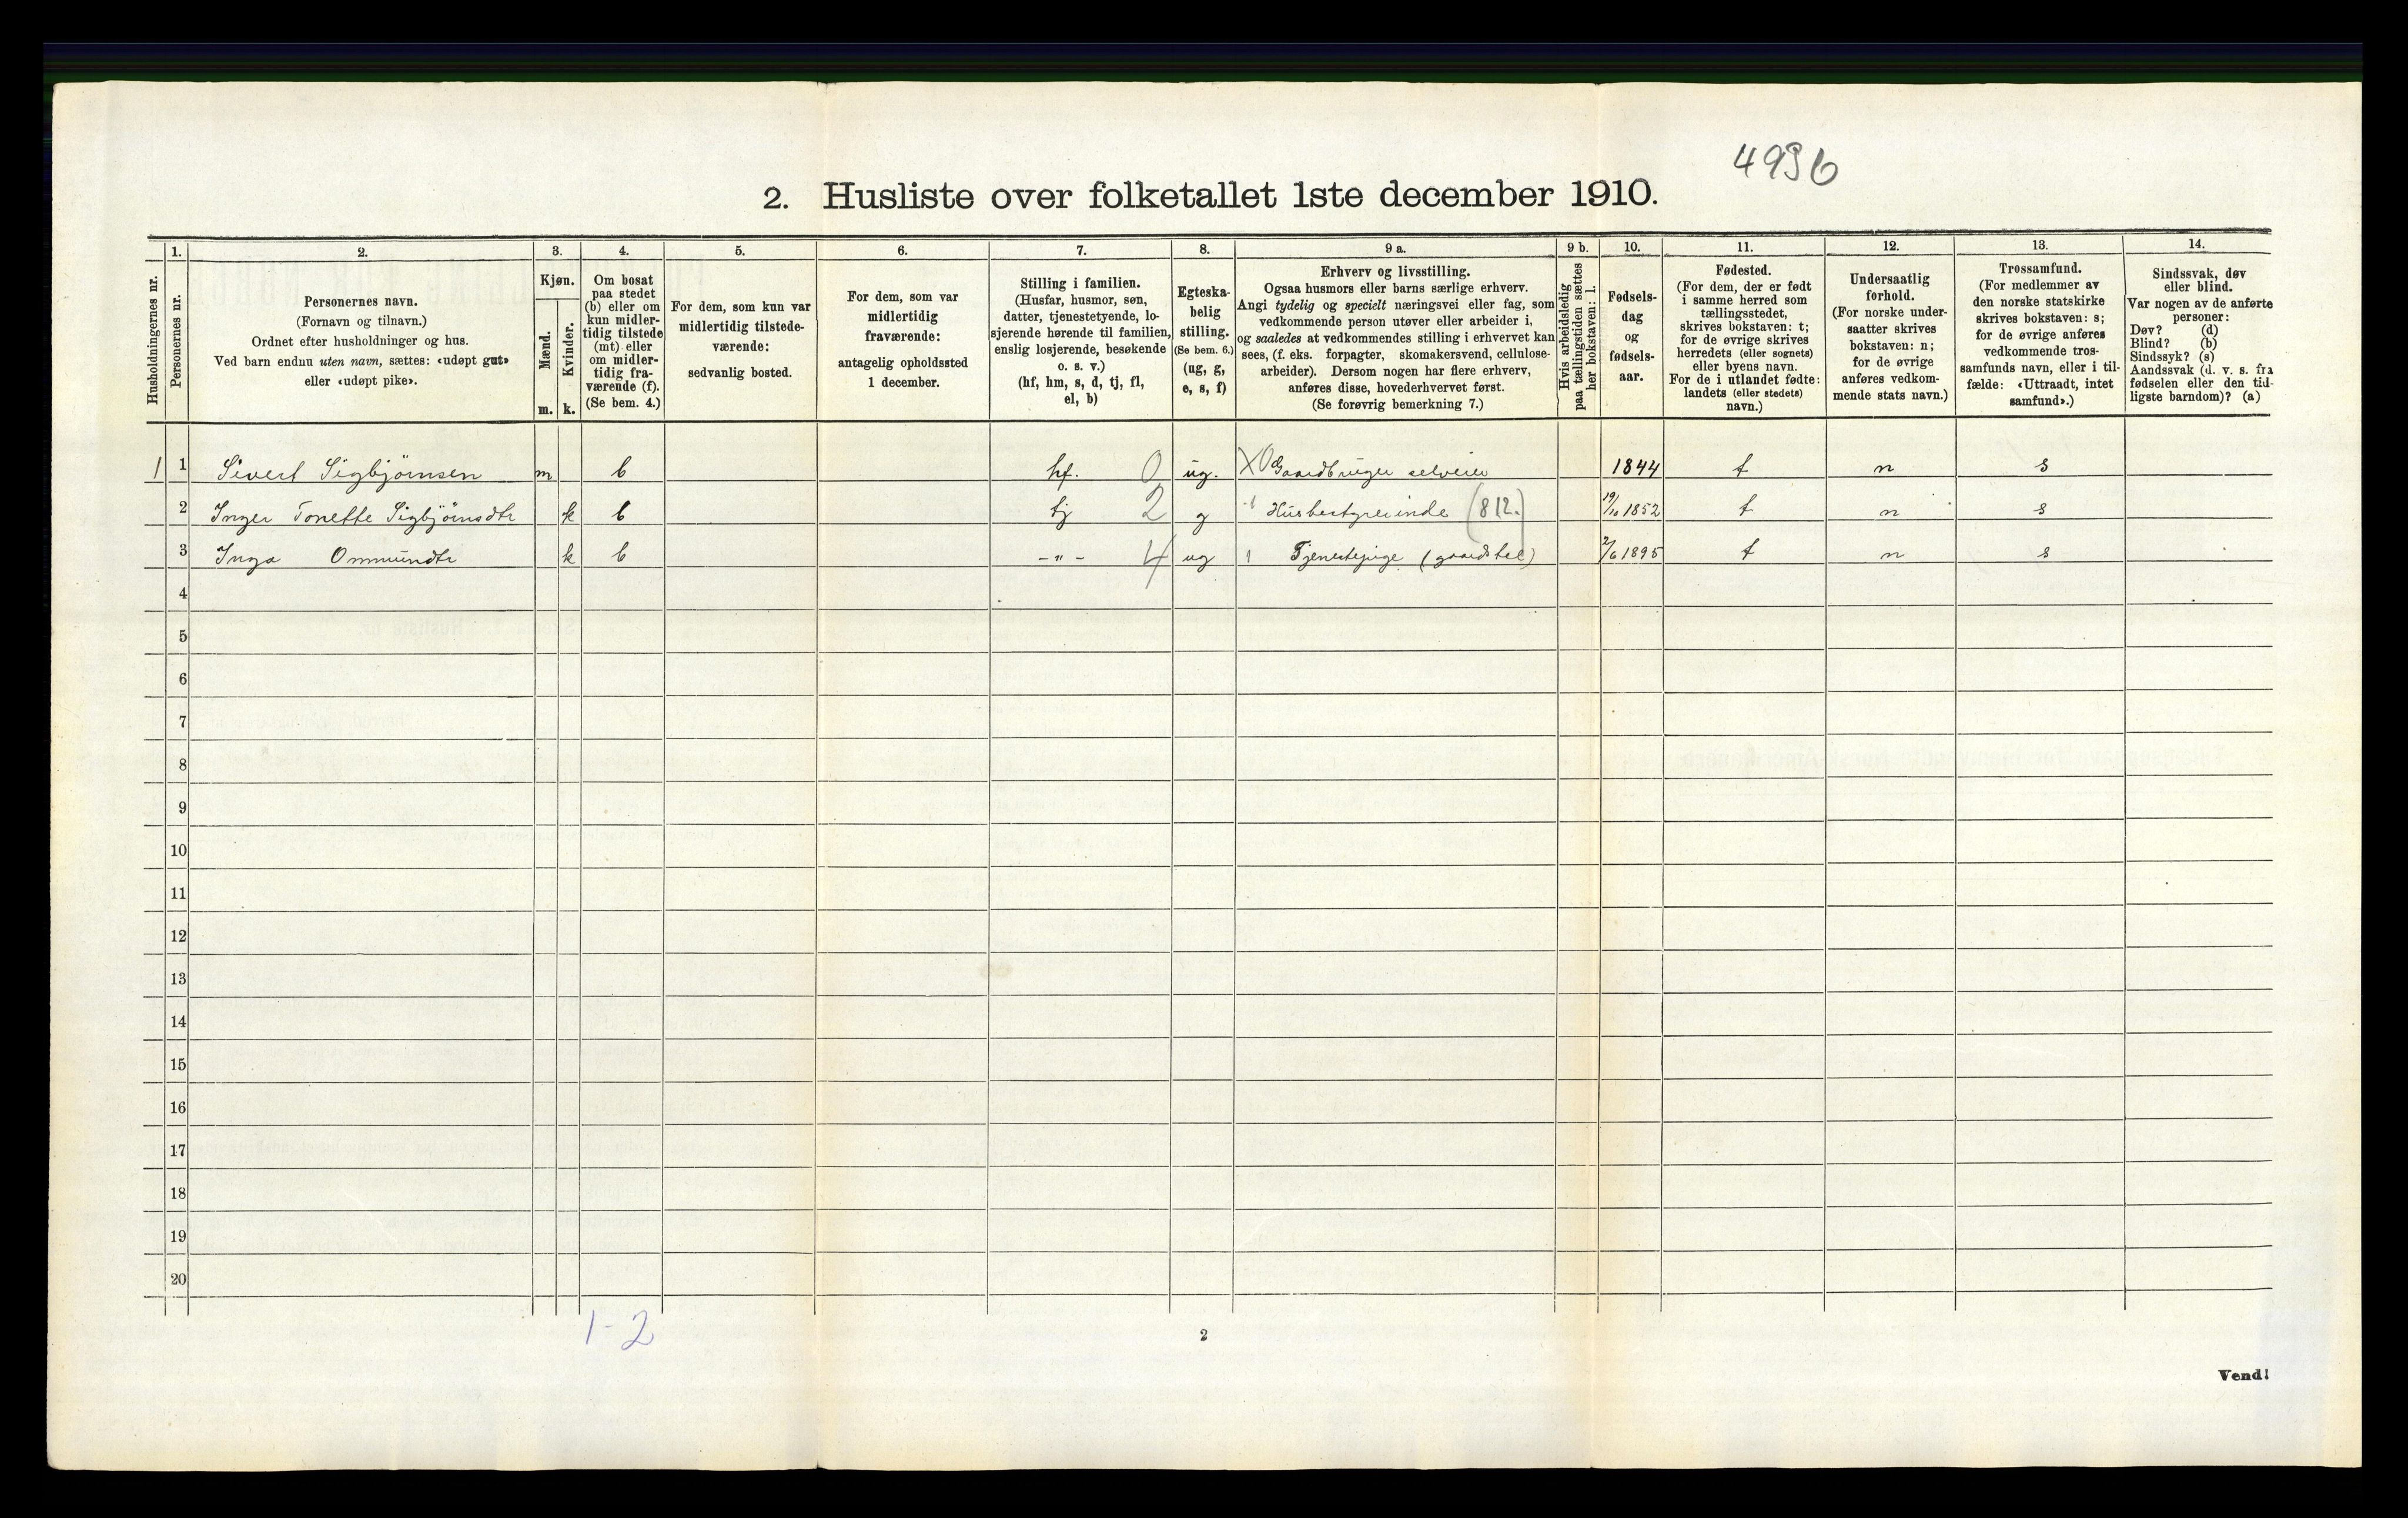 4936
2. Husliste over folketallet 1ste december 1910.
Husholdningernes nr.
1.
Personernes nr.
2.
Personernes navn.
(Fornavn og tilnavn.)
Ordnet efter husholdninger og hus.
Ved barn endnu uten navn, sættes: «udøpt gut»
eller «udøpt pike».
3.
Kjøn.
Mænd.
Kvinder.
m. k.
4.
Om bosat
paa stedet
(b) eller om
kun midler-
tidig tilstede
(mt) eller
om midler-
tidig fra-
værende (f).
(Se bem. 4.)
5.
For dem, som kun var
midlertidig tilstede-
værende:
sedvanlig bosted.
6.
For dem, som var
midlertidig
fraværende:
antagelig opholdssted
1 december.
7.
Stilling i familien.
(Husfar, husmor, søn,
datter, tjenestetyende, lo-
sjerende hørende til familien,
enslig losjerende, besøkende
o. s. v.)
(hf, hm, s, d, tj, fl,
el, b)
8.
Egteska-
belig
stilling.
(Se bem. 6.)
(ug, g,
e, s, f)
9 a.
Erhverv og livsstilling.
Ogsaa husmors eller barns særlige erhverv.
Angi tydelig og specielt næringsvei eller fag, som
vedkommende person utøver eller arbeider i,
og saaledes at vedkommendes stilling i erhvervet kan
sees, (f. eks. forpagter, skomakersvend, cellulose-
arbeider). Dersom nogen har flere erhverv,
anføres disse, hovederhvervet først.
(Se forøvrig bemerkning 7.)
9 b.
Hvis arbeidsledig
paa tællingstiden sættes
her bokstaven: l.
10.
Fødsels-
dag
og
fødsels-
aar.
11.
Fødested.
(For dem, der er født
i samme herred som
tællingsstedet,
skrives bokstaven: t;
for de øvrige skrives
herredets (eller sognets)
eller byens navn.
For de i utlandet fødte:
landets (eller stedets)
navn.)
12.
Undersaatlig
forhold.
(For norske under-
saatter skrives
bokstaven: n;
for de øvrige
anføres vedkom-
mende stats navn.)
13.
Trossamfund.
(For medlemmer av
den norske statskirke
skrives bokstaven: s;
for de øvrige anføres
vedkommende tros-
samfunds navn, eller i til-
fælde: «Uttraadt, intet
samfund».)
14.
Sindssvak, døv
eller blind.
Var nogen av de anførte
personer:
Døv? (d)
Blind? (b)
Sindssyk? (s)
Aandssvak (d. v. s. fra
fødselen eller den tid-
ligste barndom)? (a)
1 1 Sivert Sigbjörnsen m b hf. 0 ug. X0 Gaardbruger selveier 1844 t n s
2 Inger Tonette Sigbjörnsdtr k b tj 2 g 1 Husbestyrerinde (812.) 19/10 1852 t n s
3 Inga Ommundtr k b -"- 4 ug 1 Tjenestepige (gaardstel) 2/6 1895 t n s
4
5
6
7
8
9
10
11
12
13
14
15
16
17
18
19
20
1-2
2
Vend!